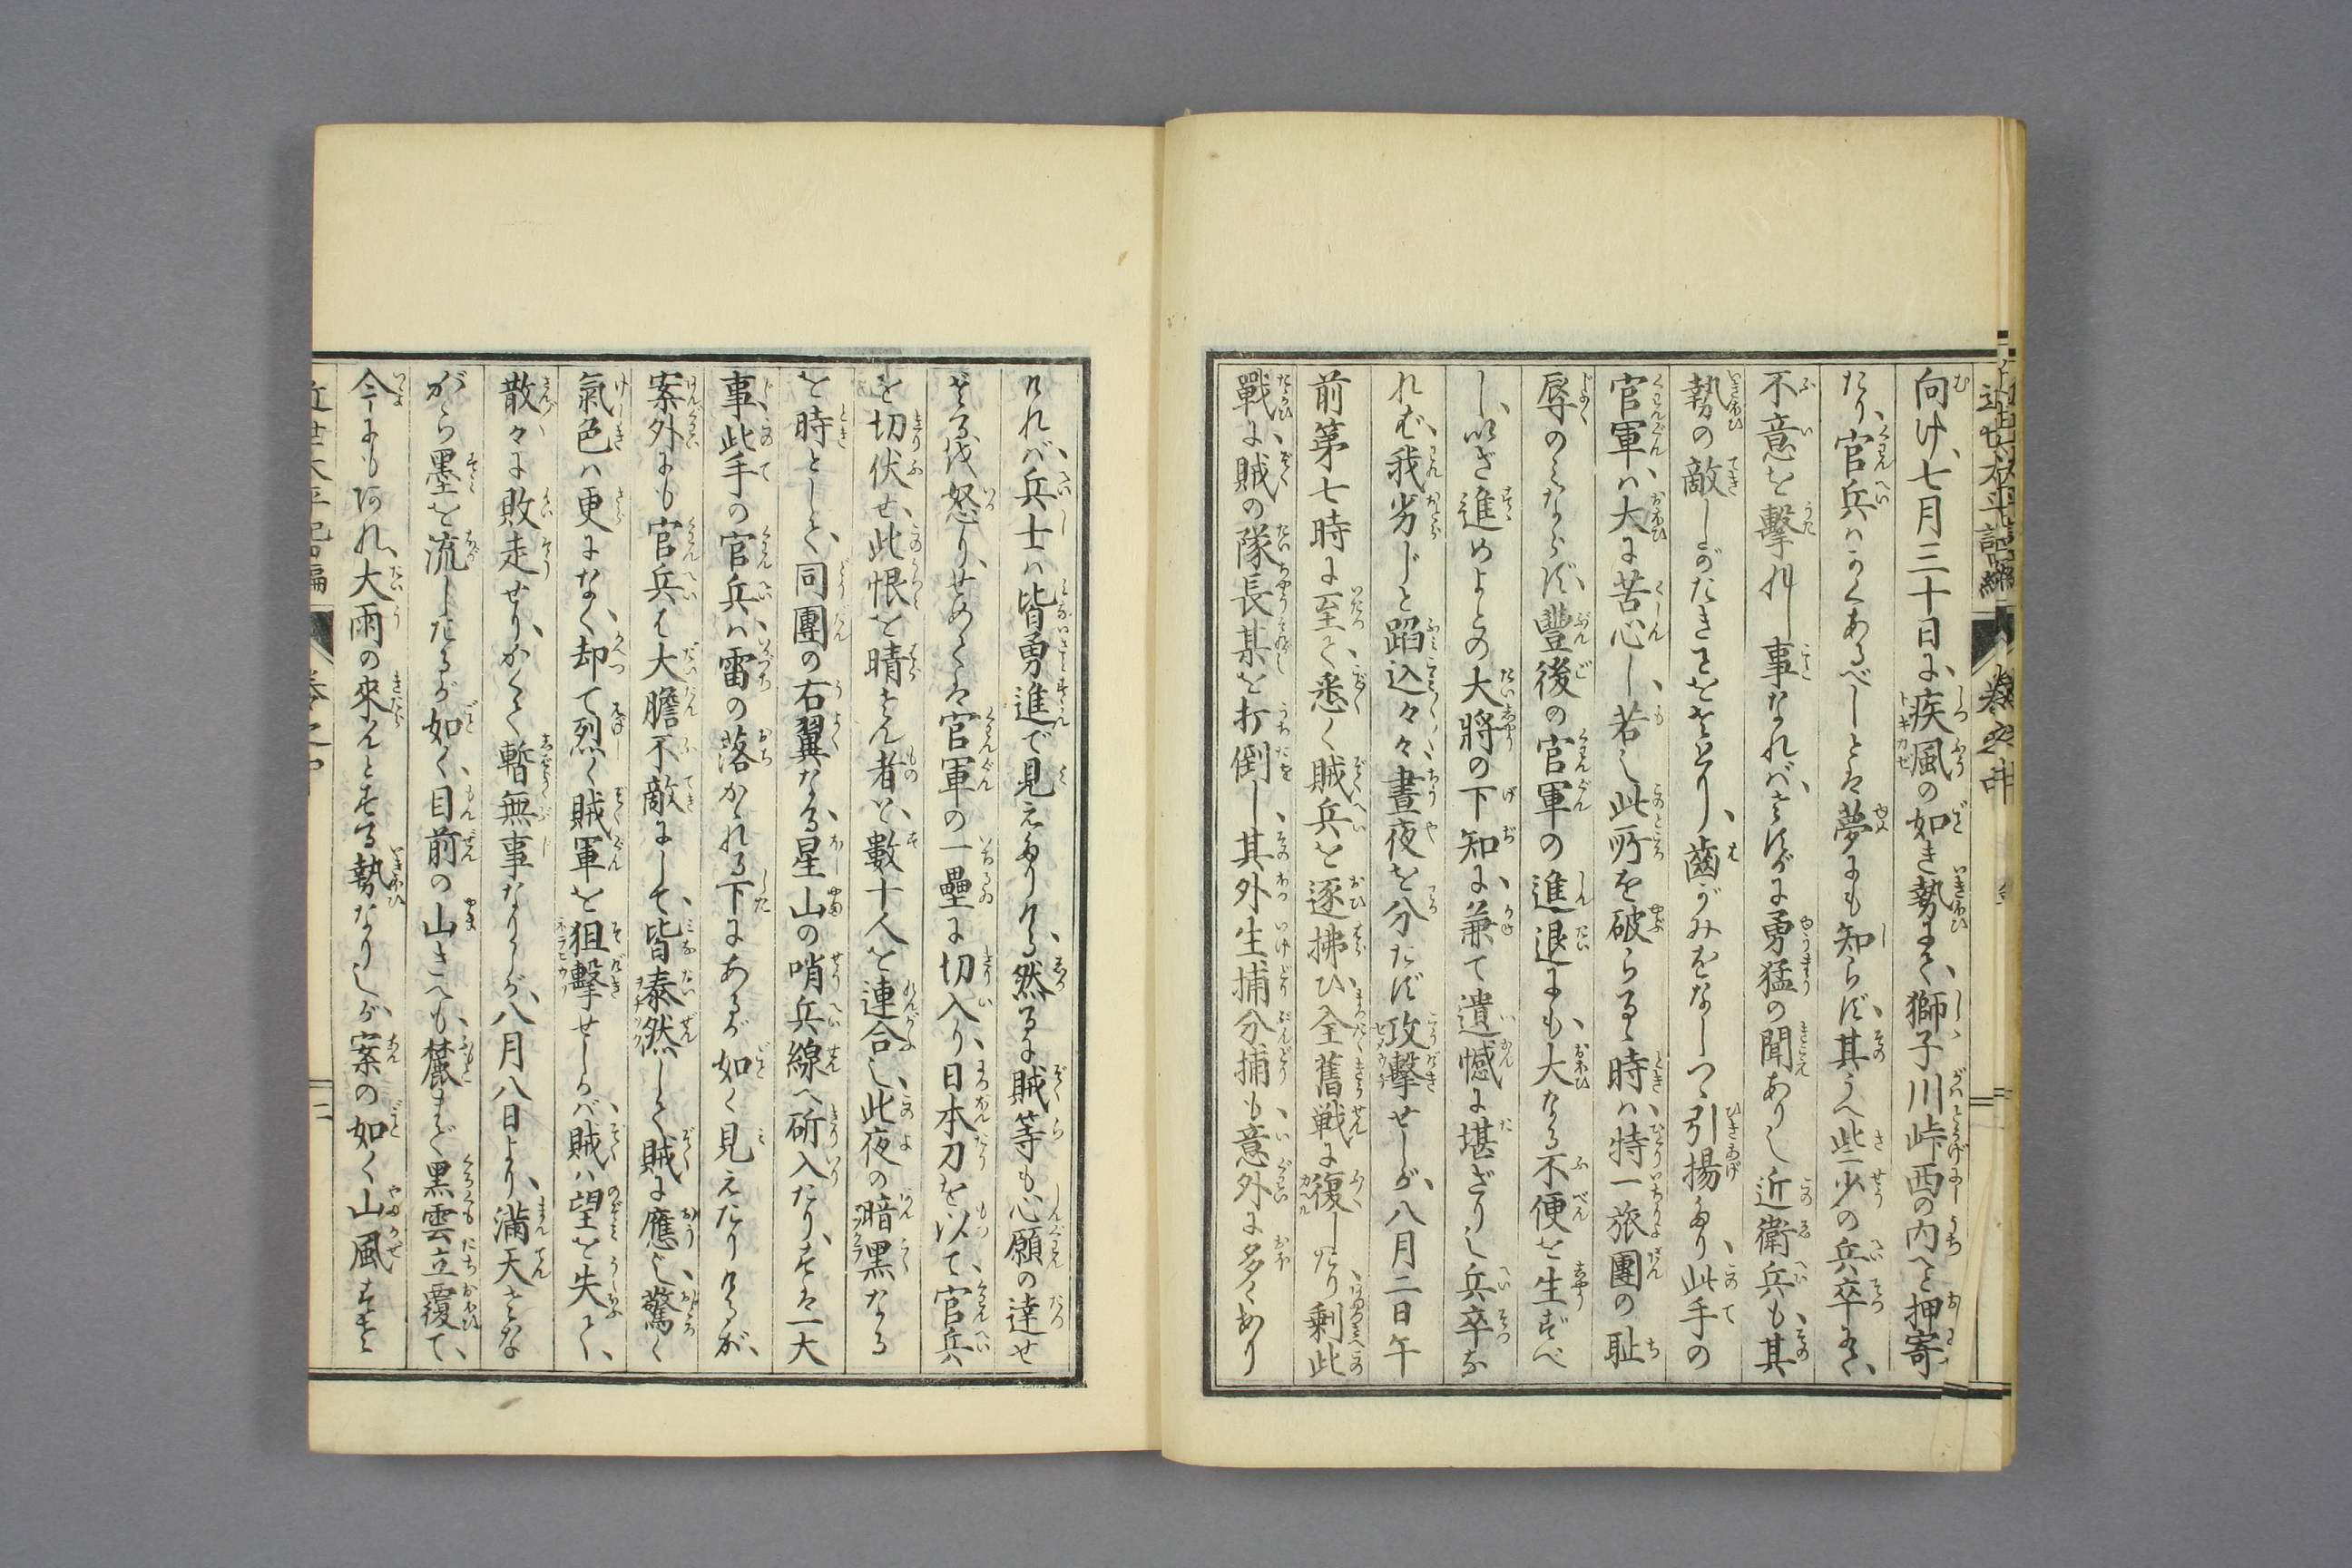 向け、七月三十日に、疾風の如き勢まて、獅子川峠西の内へと押寄
たり、官兵ハかくあるべしとは夢にも知らず、其うへ些少の兵卒にて、
不意を擊れし事なれバ、さすがに勇猛の聞ありし近衛兵も、其
勢の敵しがたきことをさとり、齒がみをなしつゝ引揚たり、此手の
官軍ハ、大に苦心し、若し此所を破らるゝ時ハ、特一旅團の耻
辱のみならず、豐後の官軍の進退にも、大なる不便を生ずべ
し、いざ進めよとの大將の下知に、兼て遺憾に堪ざりし兵卒な
れバ、我劣じと蹈込々々、晝夜を分たず攻擊せしが、八月二日午
前第七時に至て、悉く賊兵を逐拂ひ、全舊戦に復したり、剩此
戰に、賊の隊長某を打倒し、其外生捕分捕も意外に多くあり
けれバ、兵士ハ皆勇進で見えたりける、然るに賊等も心願の達せ
ざるを怒り、せめては官軍の一壘に切入り、日本刀を以て、官兵
を切伏せ、此恨を晴さん者と、數十人を連合し、此夜の暗黑なる
を時として、同團の右翼なる、星山の哨兵線へ斫入たり、すは一大
事、此手の官兵ハ、雷の落かゝれる下にあるが如く見えたりけるが、
案外にも官兵は大膽不敵にして、皆泰然として賊に應し、驚く
氣色ハ更になく、却て烈く賊軍を狙擊せしかバ、賊ハ望を失て、
散々に敗走せり、かくて暫無事なりしが、八月八日より、滿天さな
がら墨を流したるが如く、目前の山さへも、麓まで黑雲立覆て、
今にもあれ、大雨の來んとする勢なりしが、案の如く山風すさ